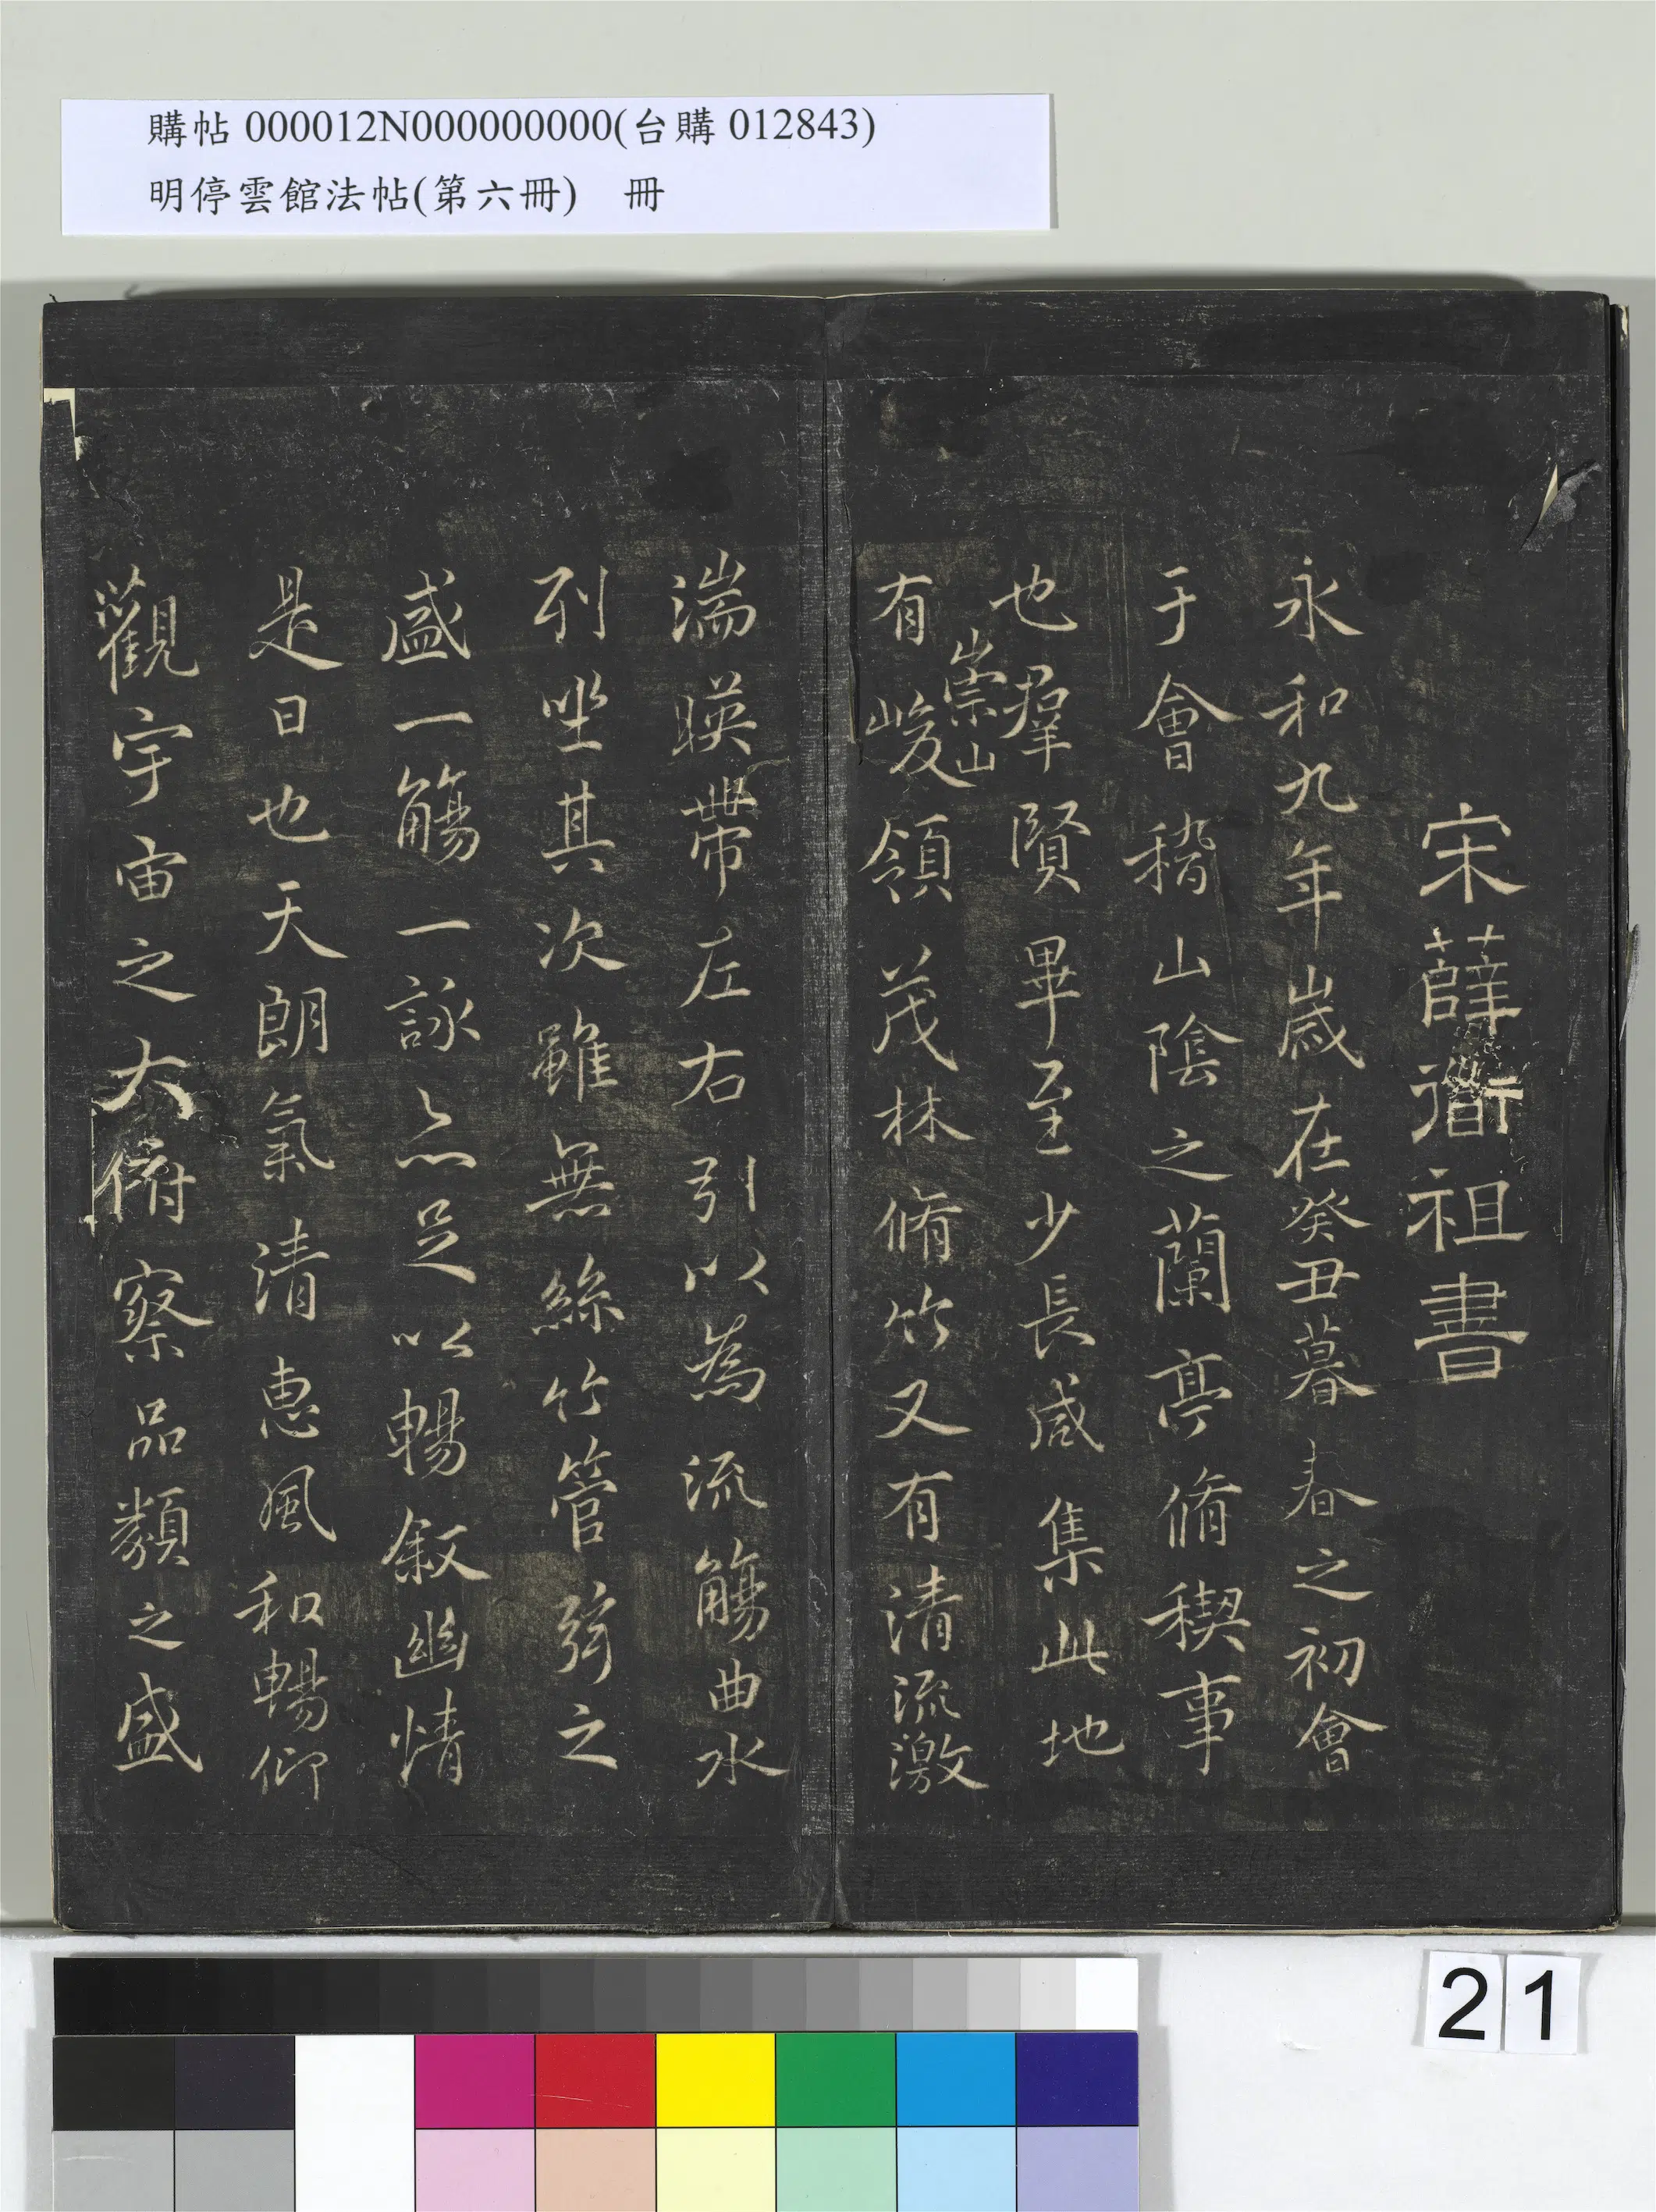 購帖 000012N000000000(台購 012843)
明停雲館法帖(第六冊)　冊
宋薛衟祖書
永和九年歲在癸丑暮春之初會
于會稽山陰之蘭亭脩稧事
也羣賢畢至少長咸集此地
有崇山峻領茂林脩竹又有清流激
湍暎帶左右引以為流觴曲水
列坐其次雖無絲竹管弦之
盛一觴一詠亦足以暢敘幽情
是日也天朗氣清惠風和暢仰
觀宇宙之大俯察品類之盛
21